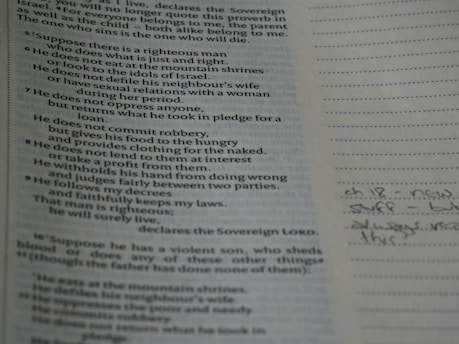 as I live, declares the Sovereign
you will no longer quote this proverb in
Israel. ⁴For everyone belongs to me, the parent
as well as the child – both alike belong to me.
The one who sins is the one who will die.
⁵'Suppose there is a righteous man
who does what is just and right.
⁶He does not eat at the mountain shrines
or look to the idols of Israel.
He does not defile his neighbour's wife
or have sexual relations with a woman
during her period.
⁷He does not oppress anyone,
but returns what he took in pledge for a
loan.
He does not commit robbery,
but gives his food to the hungry
and provides clothing for the naked.
⁸He does not lend to them at interest
or take a profit from them.
He withholds his hand from doing wrong
and judges fairly between two parties.
⁹He follows my decrees
and faithfully keeps my laws.
That man is righteous;
he will surely live,
declares the Sovereign LORD.
¹⁰'Suppose he has a violent son, who sheds
blood or does any of these other things
¹¹(though the father has done none of them):
'He eats at the mountain shrines.
He defiles his neighbour's wife.
¹²He oppresses the poor and needy.
He commits robbery.
He does not return what he took in
pledge.
ch 18 - new